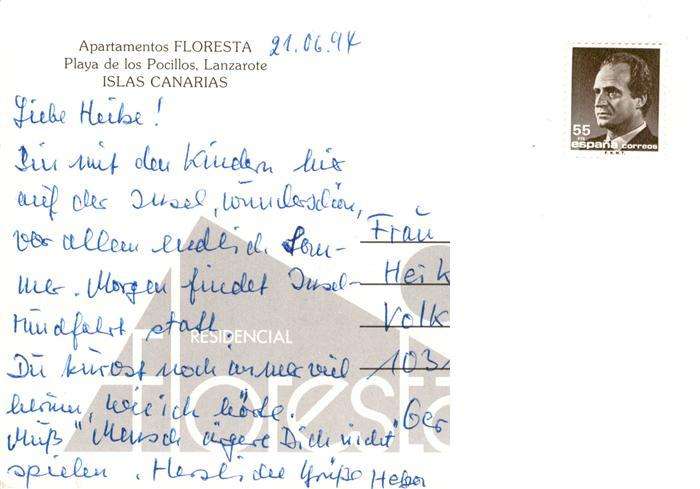 Apartamentos FLORESTA 21.06.94
Playa de los Pocillos, Lanzarote
ISLAS CANARIAS
Liebe Heike!
Bin mit den Kindern hier
auf der Insel, wunderschön,
vor allem endlich Som-
mer. Morgen findet Insel-
rundfahrt statt.
Du kurvst noch immer viel
herum, wie ich hörte.
Muß "Mensch ärgere Dich nicht"
spielen. Herzliche Grüße
Frau
Heik
Volk
103
Ger
RESIDENCIAL
Floresta
55
PTS
españa correos
F.N.M.T.